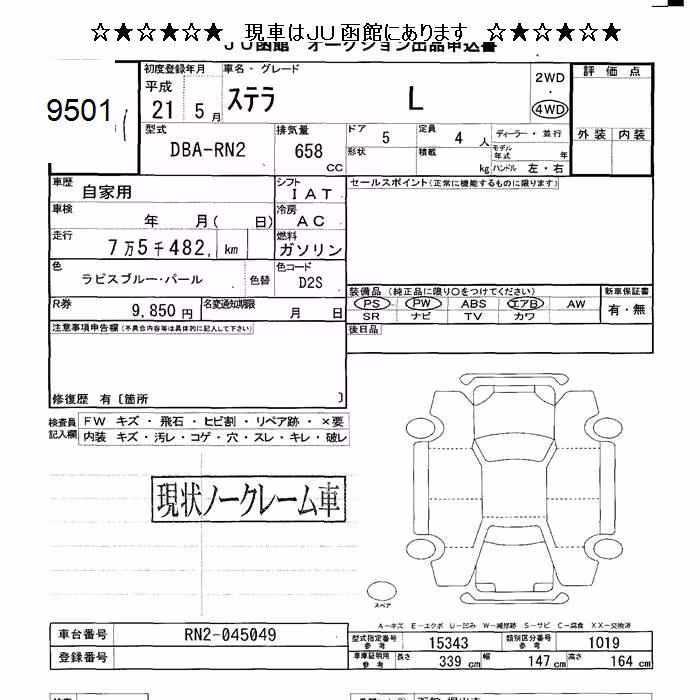 ☆★☆★☆★ 現車はJU函館にあります ☆★☆★☆★
JU函館 オークション出品申込書
9501
初度登録年月 車名・グレード
平成 21 5月 ステラ L 2WD 4WD
評価点
外装 内装
型式 DBA-RN2 排気量 658 CC
ドア 5 定員 4 人 ディーラー・並行
形状 積載 kg モデル年式 年
ハンドル 左・右
車歴 自家用 シフト IAT
セールスポイント(正常に機能するものに限ります)
車検 年 月( 日) 冷房 AC
走行 7万5千482, km 燃料 ガソリン
色 ラピスブルー・パール 色替 色コード D2S
装備品(純正品に限り○をつけてください) 新車保証書
PS PW ABS エアB AW 有・無
SR ナビ TV カワ
R券 9,850円 名変通知期限 月 日
後日品
注意事項申告欄(不具合内容等は具体的に記入して下さい)
修復歴 有〔箇所 〕
検査員記入欄
FW キズ・飛石・ヒビ割・リペア跡・×要
内装 キズ・汚レ・コゲ・穴・スレ・キレ・破レ
現状ノークレーム車
スペア
A-キズ E-エクボ U-凹み W-補修跡 S-サビ C-腐食 XX-交換済
車台番号 RN2-045049
型式指定番号 参考 15343 類別区分番号 参考 1019
登録番号
車庫証明用 参考 長さ 339 cm 幅 147 cm 高さ 164 cm